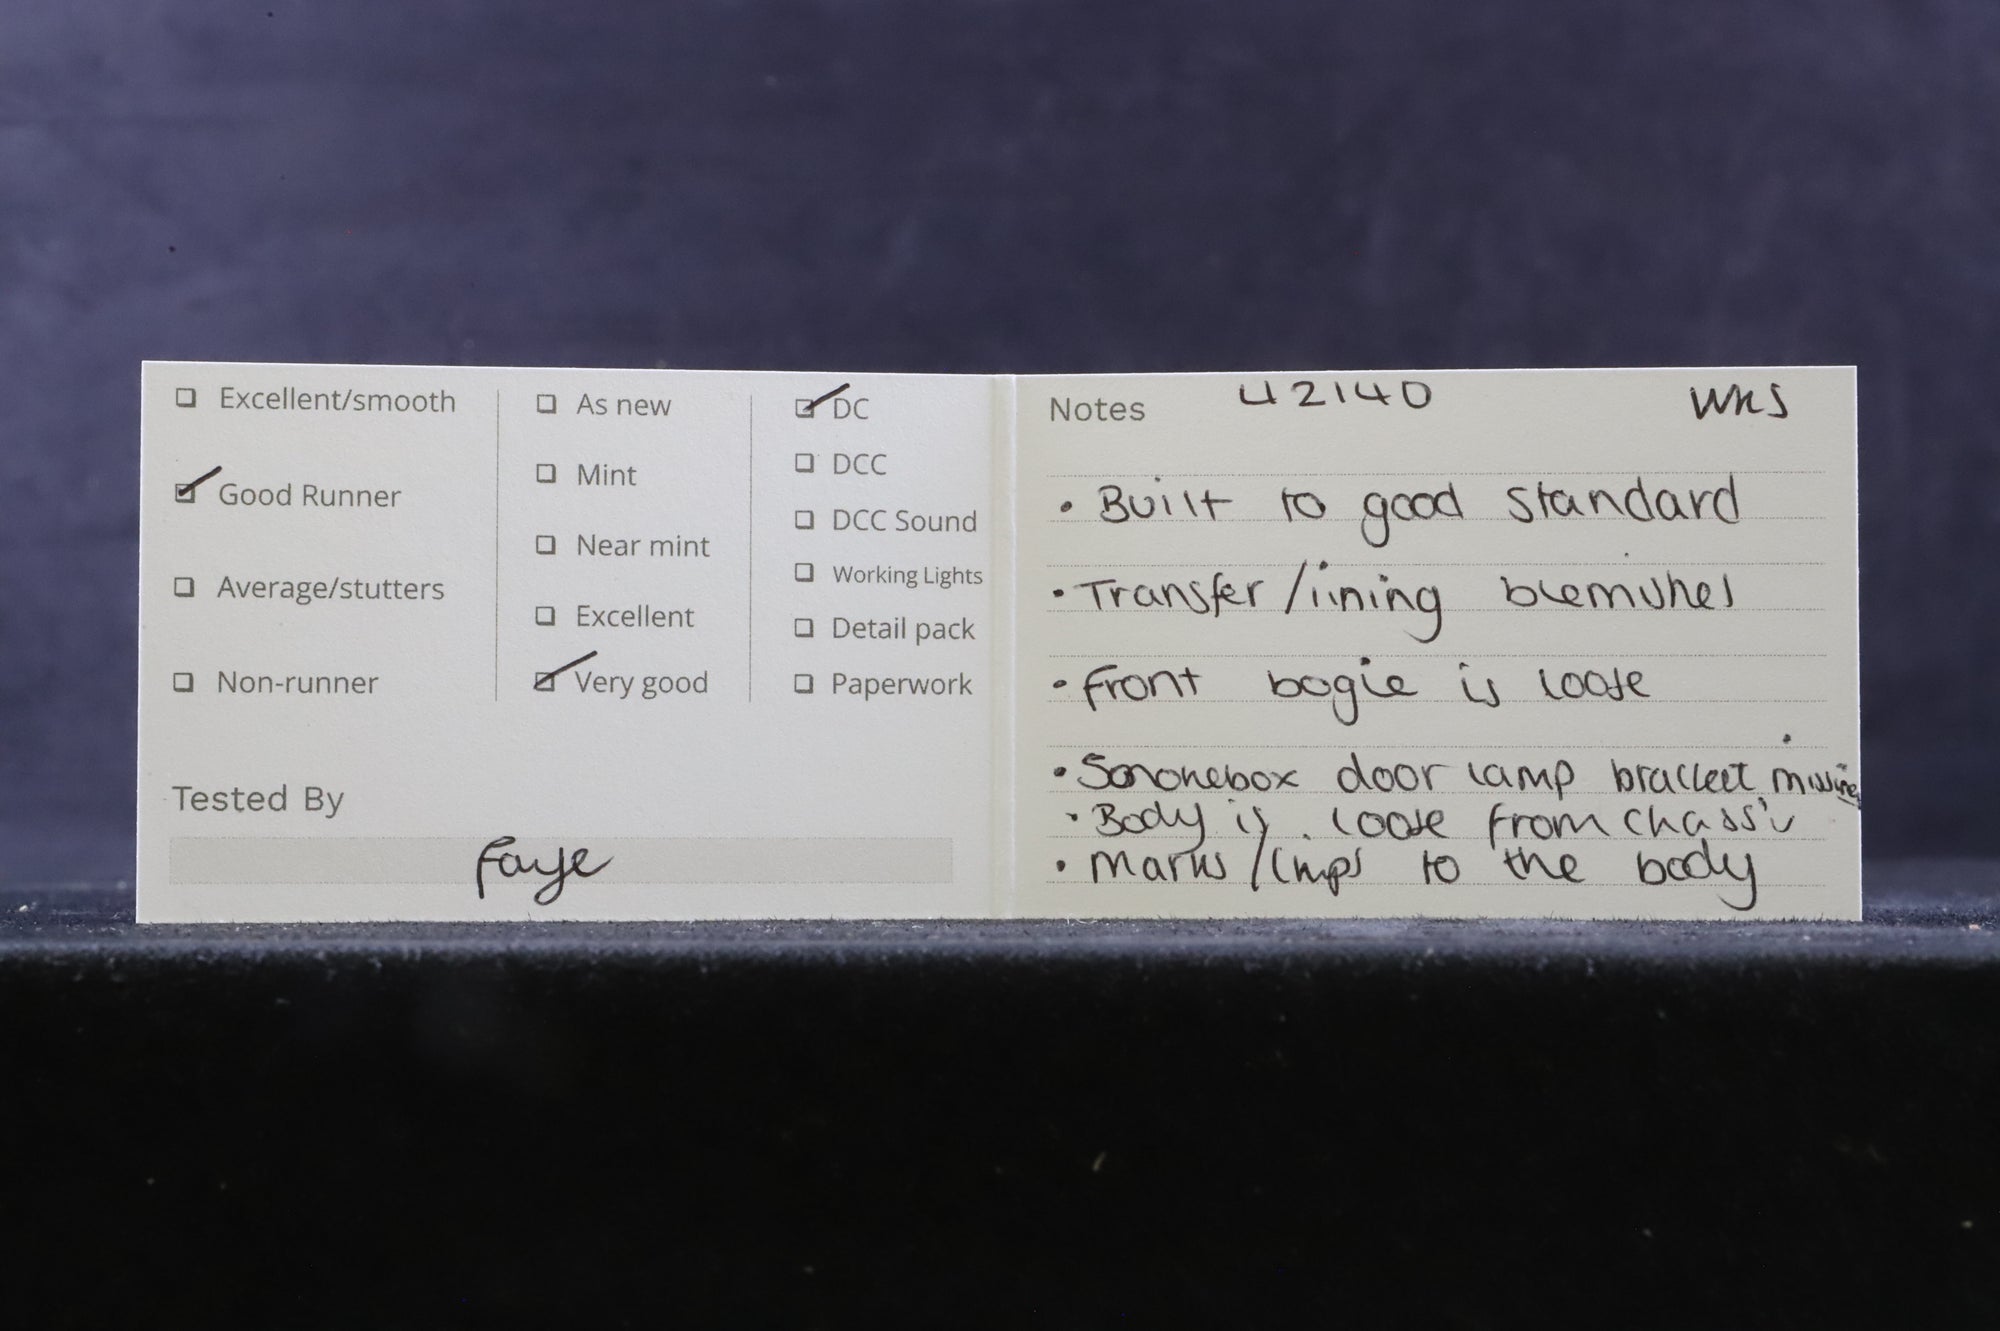 Excellent/smooth
Good Runner
Average/stutters
Non-runner
As new
Mint
Near mint
Excellent
Very good
DC
DCC
DCC Sound
Working Lights
Detail pack
Paperwork
Tested By
Faye
Notes 42140 WKS
• Built to good standard
• Transfer/lining blemishes
• Front bogie is loose
• Smokebox door lamp bracket missing
• Body is loose from chassis
• Marks/chips to the body